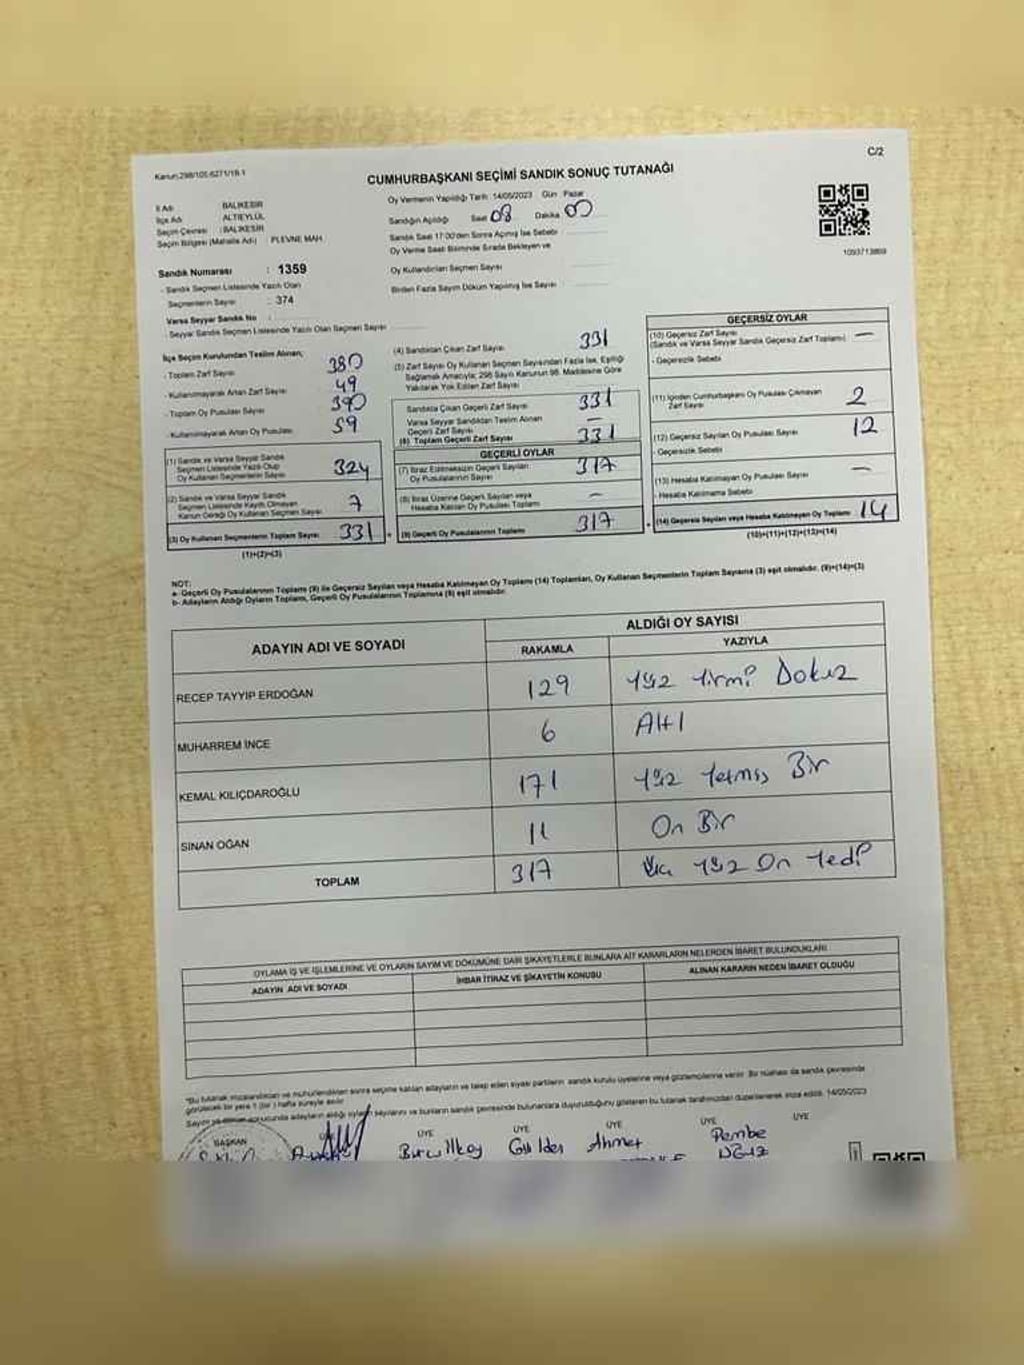 Kanun:298/105-6271/18-1
C/2
CUMHURBAŞKANI SEÇİMİ SANDIK SONUÇ TUTANAĞI
İl Adı : BALIKESİR
İlçe Adı : ALTIEYLÜL
Seçim Çevresi : BALIKESİR
Seçim Bölgesi (Mahalle Adı) : PLEVNE MAH.
Oy Vermenin Yapıldığı Tarih: 14/05/2023 Gün Pazar
Sandığın Açıldığı Saat 08 Dakika 00
Sandık Saat 17:00'den Sonra Açılmış İse Sebebi :
Oy Verme Saati Bitiminde Sırada Bekleyen ve
Oy Kullandırılan Seçmen Sayısı
Birden Fazla Sayım Döküm Yapılmış İse Sayısı :
1093713869
Sandık Numarası : 1359
- Sandık Seçmen Listesinde Yazılı Olan
Seçmenlerin Sayısı : 374
Varsa Seyyar Sandık No :
- Seyyar Sandık Seçmen Listesinde Yazılı Olan Seçmen Sayısı
İlçe Seçim Kurulundan Teslim Alınan;
- Toplam Zarf Sayısı 380
- Kullanılmayarak Artan Zarf Sayısı 49
- Toplam Oy Pusulası Sayısı 390
- Kullanılmayarak Artan Oy Pusulası 59
(1) Sandık ve Varsa Seyyar Sandık
Seçmen Listesinde Yazılı Olup
Oy Kullanan Seçmenlerin Sayısı 324
(2) Sandık ve Varsa Seyyar Sandık
Seçmen Listesinde Kayıtlı Olmayan
Kanun Gereği Oy Kullanan Seçmen Sayısı 7
(3) Oy Kullanan Seçmenlerin Toplam Sayısı 331
(1)+(2)=(3)
(4) Sandıktan Çıkan Zarf Sayısı 331
(5) Zarf Sayısı Oy Kullanan Seçmen Sayısından Fazla İse, Eşitliği
Sağlamak Amacıyla; 298 Sayılı Kanunun 98. Maddesine Göre
Yakılarak Yok Edilen Zarf Sayısı
Sandıkta Çıkan Geçerli Zarf Sayısı 331
Varsa Seyyar Sandıktan Teslim Alınan
Geçerli Zarf Sayısı
(6) Toplam Geçerli Zarf Sayısı 331
GEÇERLİ OYLAR
(7) İtiraz Edilmeksizin Geçerli Sayılan
Oy Pusulalarının Sayısı 317
(8) İtiraz Üzerine Geçerli Sayılan veya
Hesaba Katılan Oy Pusulası Toplamı –
(9) Geçerli Oy Pusulalarının Toplamı 317
GEÇERSİZ OYLAR
(10) Geçersiz Zarf Sayısı
(Sandık ve Varsa Seyyar Sandık Geçersiz Zarf Toplamı) —
- Geçersizlik Sebebi
(11) İçinden Cumhurbaşkanı Oy Pusulası Çıkmayan
Zarf Sayısı 2
(12) Geçersiz Sayılan Oy Pusulası Sayısı 12
- Geçersizlik Sebebi
(13) Hesaba Katılmayan Oy Pusulası Sayısı —
- Hesaba Katılmama Sebebi
(14) Geçersiz Sayılan veya Hesaba Katılmayan Oy Toplamı 14
(10)+(11)+(12)+(13)=(14)
NOT:
a- Geçerli Oy Pusulalarının Toplamı (9) ile Geçersiz Sayılan veya Hesaba Katılmayan Oy Toplamı (14) Toplamları, Oy Kullanan Seçmenlerin Toplam Sayısına (3) eşit olmalıdır. (9)+(14)=(3)
b- Adayların Aldığı Oyların Toplamı, Geçerli Oy Pusulalarının Toplamına (9) eşit olmalıdır.
ADAYIN ADI VE SOYADI
ALDIĞI OY SAYISI
RAKAMLA YAZIYLA
RECEP TAYYİP ERDOĞAN 129 Yüz Yirmi Dokuz
MUHARREM İNCE 6 Altı
KEMAL KILIÇDAROĞLU 171 Yüz Yetmiş Bir
SİNAN OĞAN 11 On Bir
TOPLAM 317 Üç Yüz On Yedi
OYLAMA İŞ VE İŞLEMLERİNE VE OYLARIN SAYIM VE DÖKÜMÜNE DAİR ŞİKAYETLERLE BUNLARA AİT KARARLARIN NELERDEN İBARET BULUNDUKLARI
ADAYIN ADI VE SOYADI İHBAR İTİRAZ VE ŞİKAYETİN KONUSU ALINAN KARARIN NEDEN İBARET OLDUĞU
*Bu tutanak imzalandıktan ve mühürlendikten sonra seçime katılan adayların ve talep eden siyasi partilerin sandık kurulu üyelerine veya gözlemcilerine verilir. Bir nüshası da sandık çevresinde
görülecek bir yere 1 (bir) hafta süreyle asılır.
Sayım ve döküm sonucunda adayların aldığı oyların sayılarını ve bunların sandık çevresinde bulunanlara duyurulduğunu gösteren bu tutanak tarafımızdan düzenlenerek imza edildi. 14/05/2023
BAŞKAN ÜYE ÜYE ÜYE ÜYE ÜYE
Ahmet Pembe